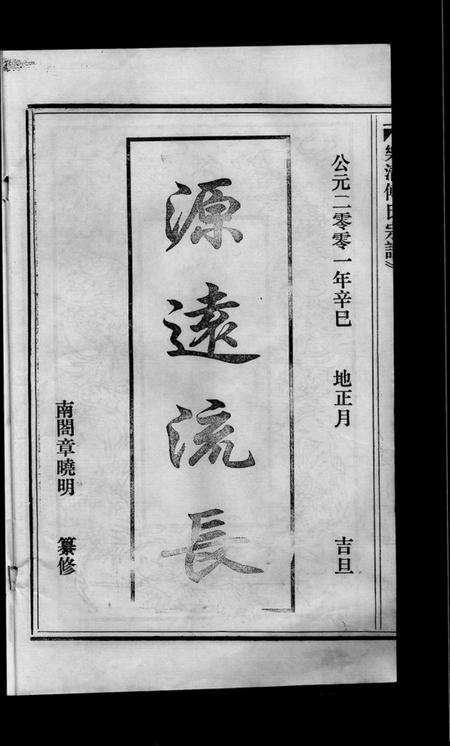 公元二零零一年辛巳 地正月 吉旦
源遠流長
南閤章曉明 纂修
氏宗譜》